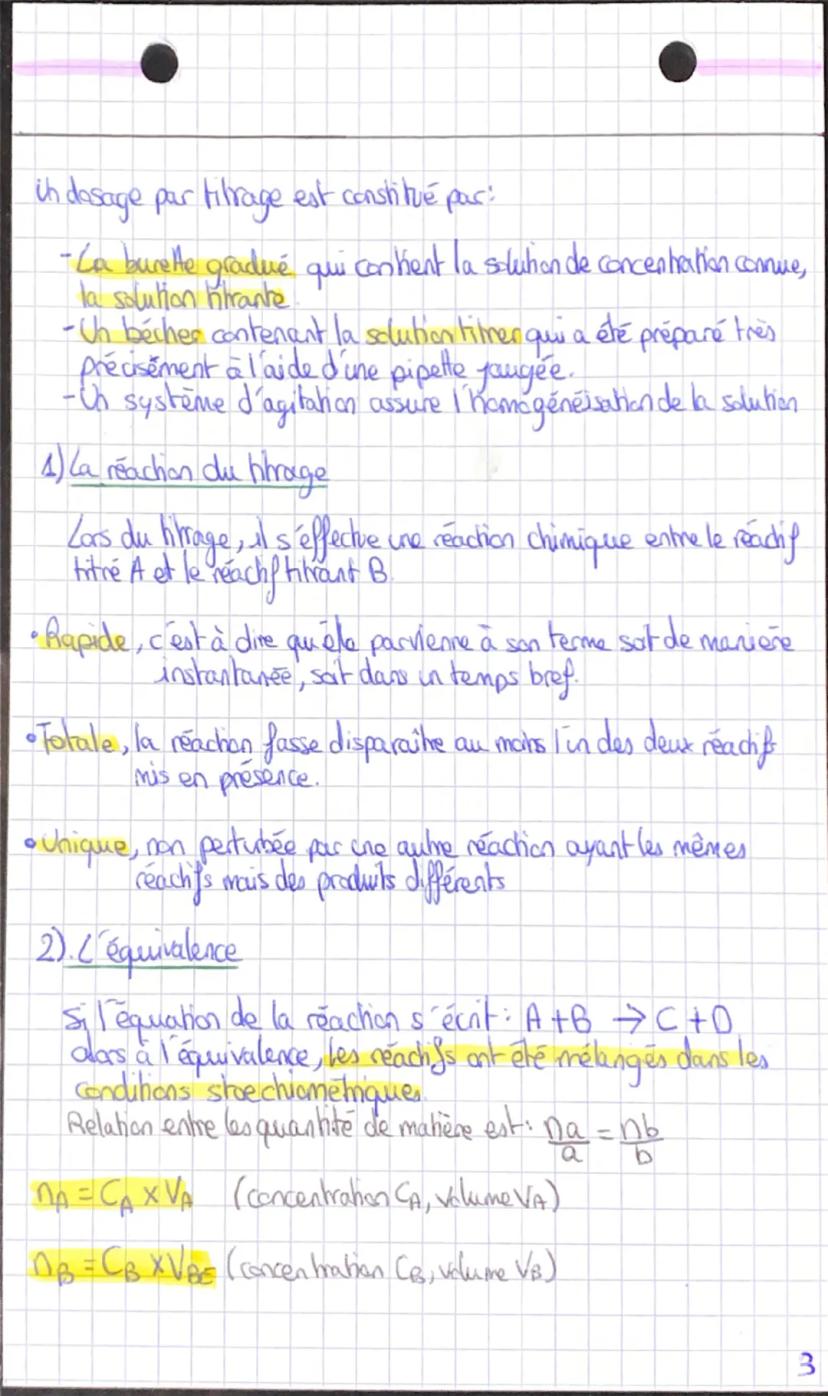 Un dosage par titrage est constitué par:
- La burette gradué qui contient la solution de concentration connue,
la solution titrante
- Un bécher contenant la solution titrer qui a été préparé très
précisément à l'aide d'une pipette jaugée.
- Un système d'agitation assure l'homogénéisation de la solution
1) La réaction du titrage
Lors du titrage, il s'effectue une réaction chimique entre le réactif
titré A et le réactif titrant B.
• Rapide, c'est à dire qu'elle parvienne à son terme soit de manière
instantanée, soit dans un temps bref.
• Totale, la réaction fasse disparaître au moins l'un des deux réactifs
mis en présence.
• Unique, non perturbée par une autre réaction ayant les mêmes
réactifs mais des produits différents
2). L'équivalence
Si l'équation de la réaction s'écrit : A + B → C + D
alors à l'équivalence, les réactifs ont été mélangés dans les
conditions stoechiométriques.
Relation entre les quantité de matière est : na/a = nb/b
nA = CA x VA (concentration CA, volume VA)
nB = CB x VBE (concentration CB, volume VB)
3